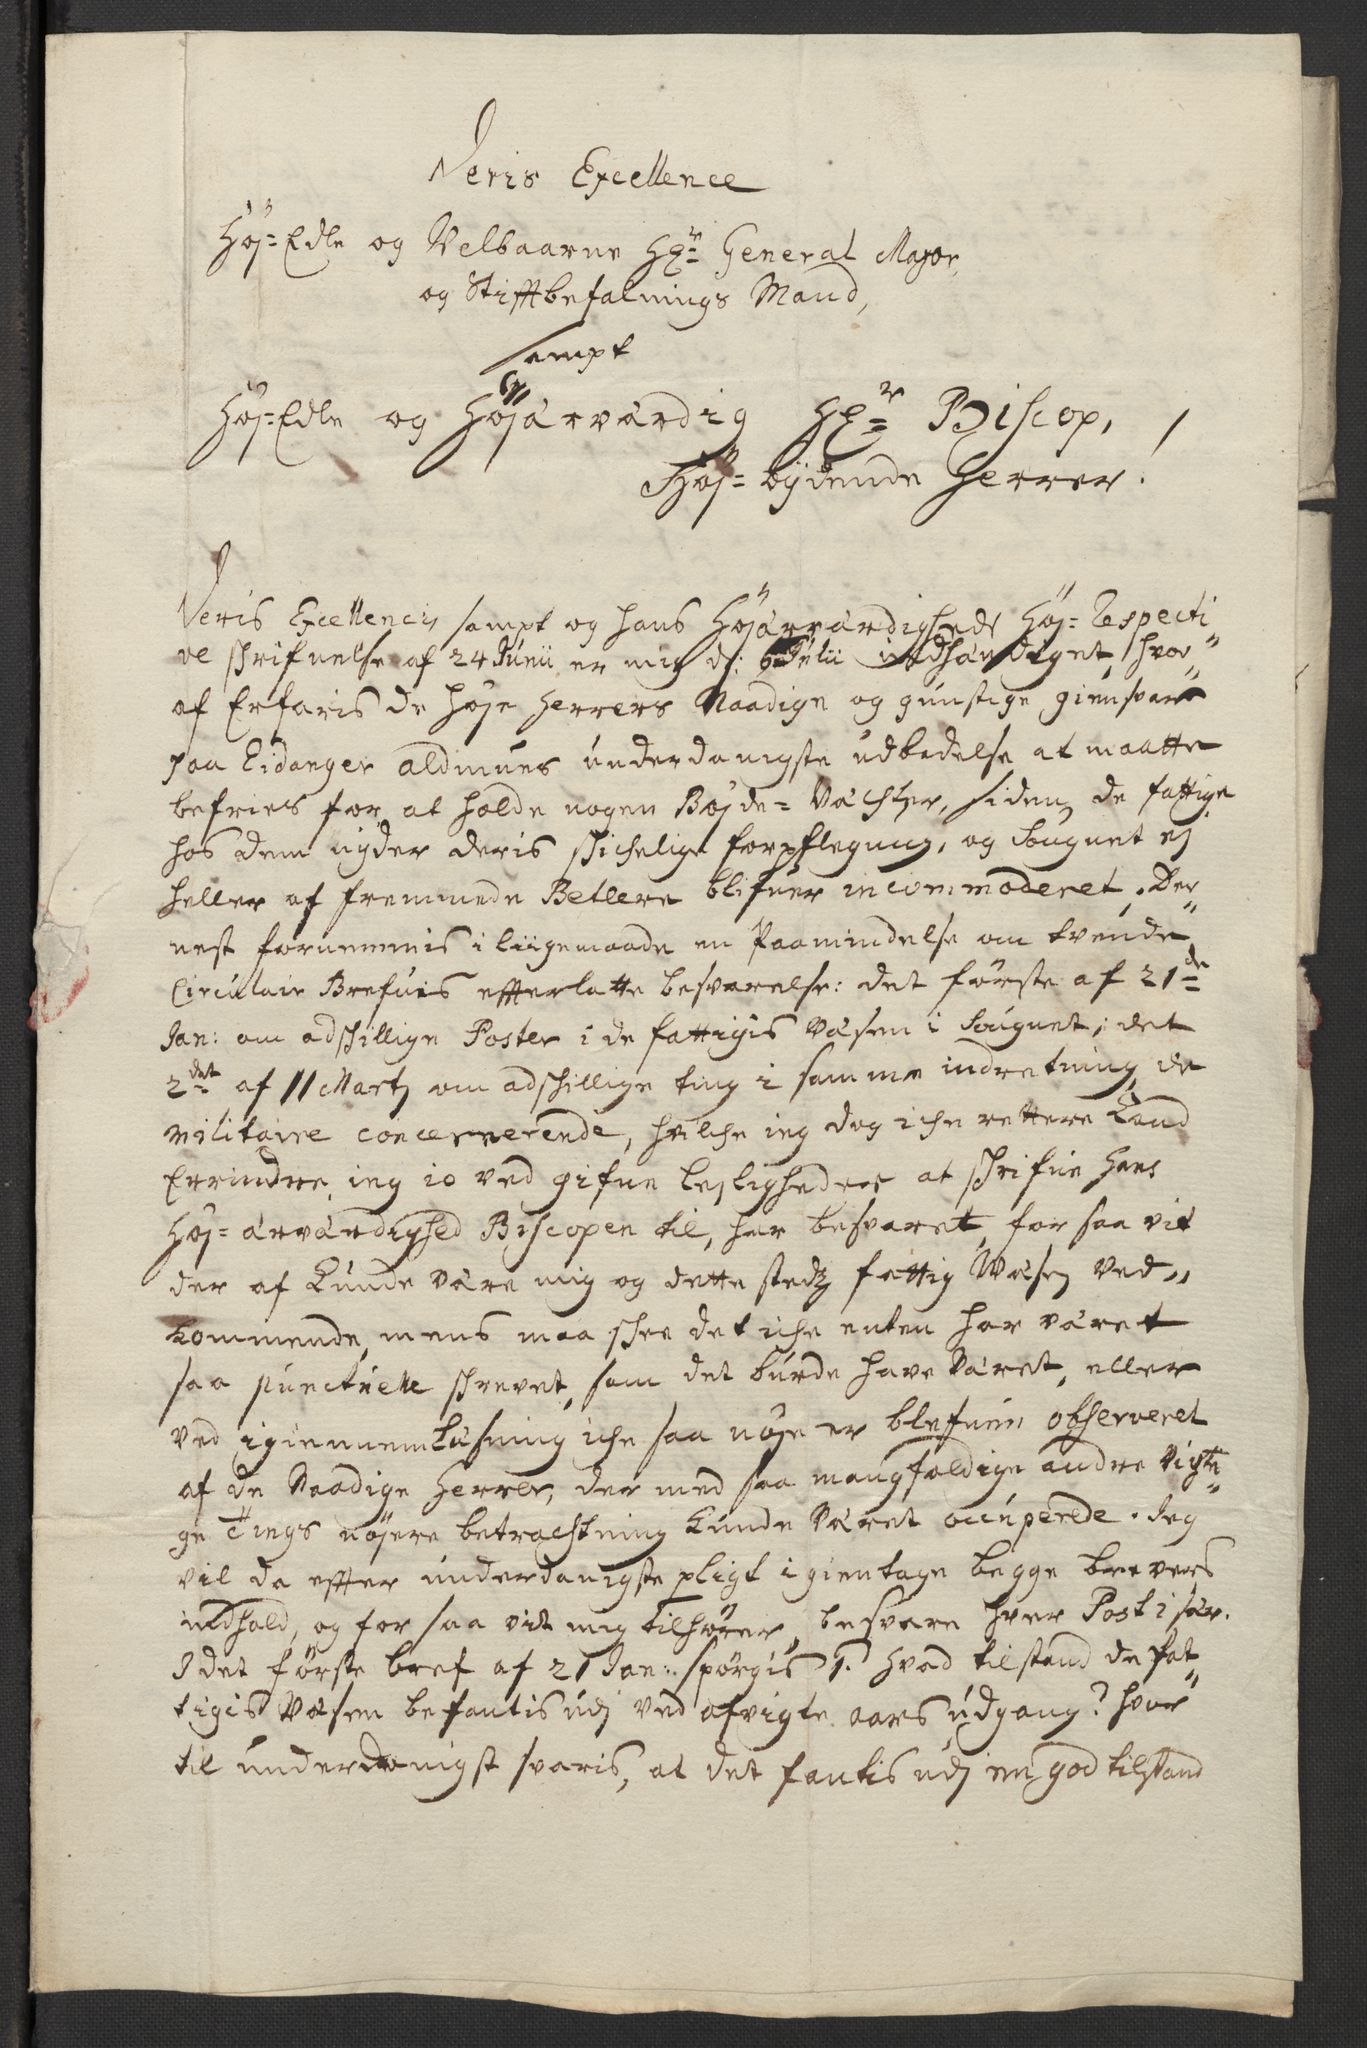 Deris Excellence
Høj-Edle og Velbaarne Hr. General Major,
og Stifftbefalnings Mand,
sampt
Høj-Edle og Højärvärdig Hr. Biscop,
Høj-bÿdende Herrer!
Deris Excellences sampt og hans Højärvärdigheds Høj-Respecti
ve skrifuelse af 24 Junii er mig d: 6 Julii indhændiget, hvor"
af Erfaris de høje Herrers Naadige og gunstige giensvar
paa Eidanger aldmues underdanigste udbedelse at maatte
befries for at holde nogen Bøjde-Vächter, siden de fattige
hos dem nÿder deris skichelige forpflegning, og Sougnet ej
heller af fremmede Betlere blifuer incommoderet. Der"
nest fornemmis i liigemaade en Paamindelse om tvende
Circulair Brefuis effterlatte besvarelse: det første af 21de
Jan: om adskillige Poster i de fattigis Väsen i Sougnet; det
2det af 11 Martj om adskillige ting i samme indretning de
Militaire concernerende, hvilche ieg dog iche rettere kand
Errindre, ieg io ved gifne lejligheder at skrifue Hans
Høj-ärvärdighed Biscopen til, har besvaret, for saa vit
der af kunde väre mig og dette stedz fattig Wäsen ved"
kommende, mens maa skee det iche enten har väret
saa punctuelle skrevet, som det burde have väret, eller
ved igiennemläsning iche saa nøje er blefuen observeret
af de Naadige Herrer, der med saa mangfoldige andre vigti"
ge Tings nøjere betrachtning kunde väret occuperede. Jeg
vil da effter underdanigste pligt igientage begge brevers
indhold, og for saa vit mig tilhører, besvare hver Post i sær.
I det første bref af 21 Jan: spørgis 1. hvad tilstand de fat"
tigis Väsen befantis udj ved afvigte aars udgang? hvor"
til underdanigst svaris, at det fantis udj en god tilstand